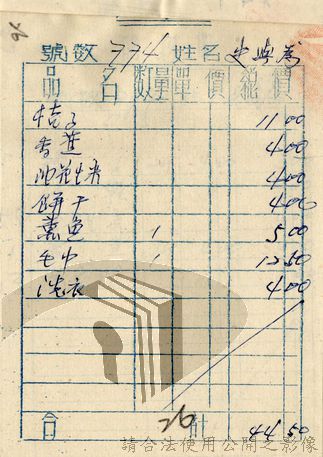 號數 774 姓名 史與為
品名 數量 單價 總價
桔子 11 00
香蕉 4 00
油花生米 4 00
餅干 4 00
薰魚 1 5 00
毛巾 1 12 50
洗衣 4 00
合計 44 50
26
請合法使用公開之影像